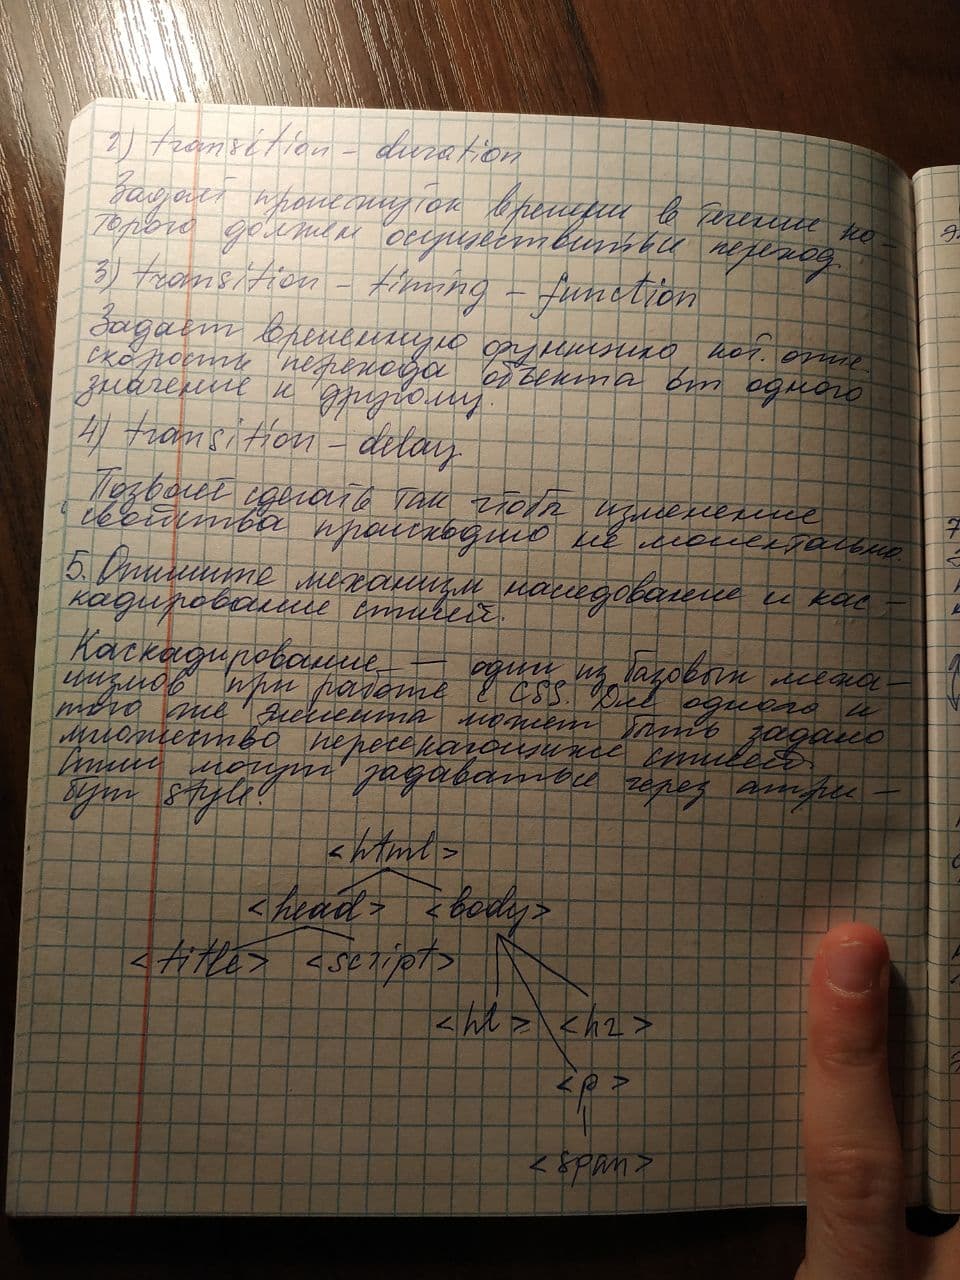 2) transition - duration
Задаёт промежуток времени в течение ко-
торого должен осуществиться переход.
3) transition - timing - function
Задаёт временную функцию кот. опис.
скорость перехода объекта от одного
значение к другому.
4) transition - delay
Позволяет сделать так чтобы изменение
свойства происходило не моментально.
5. Опишите механизм наследование и кас-
кадирование стилей.
Каскадирование - один из базовых меха-
низмов при работе с CSS. Для одного и
того же элемента может быть задано
множество пересекающихся стилей.
Стили могут задаваться через атри-
бут style.
<html>
<head> <body>
<title> <script>
<h1> <h2>
<p>
<span>